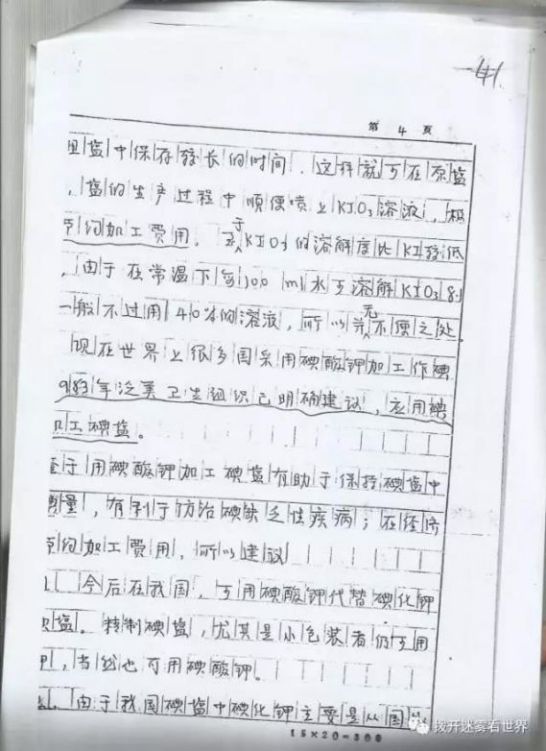 第 4 页
盐中保存较长的时间，这样就可在原盐
，盐的生产过程中顺便喷上KIO₃溶液，极
节约加工费用。至于KIO₃的溶解度比KI较低
，由于在常温下每100 ml水可溶解KIO₃ 8
一般不过用 4 %的溶液，所以并无不便之处
现在世界上很多国采用碘酸钾加工作碘
983年泛美卫生组织已明确建议，应用碘
加工碘盐。
于用碘酸钾加工碘盐有助于保持碘盐中
量，有利于防治碘缺乏性疾病；在经济
节约加工费用，所以建议
今后在我国，可用碘酸钾代替碘化钾
盐。特制碘盐，尤其是小包装者仍可用
，当然也可用碘酸钾。
由于我国碘盐中碘化钾主要是从国
15×20=300
拨开迷雾看世界